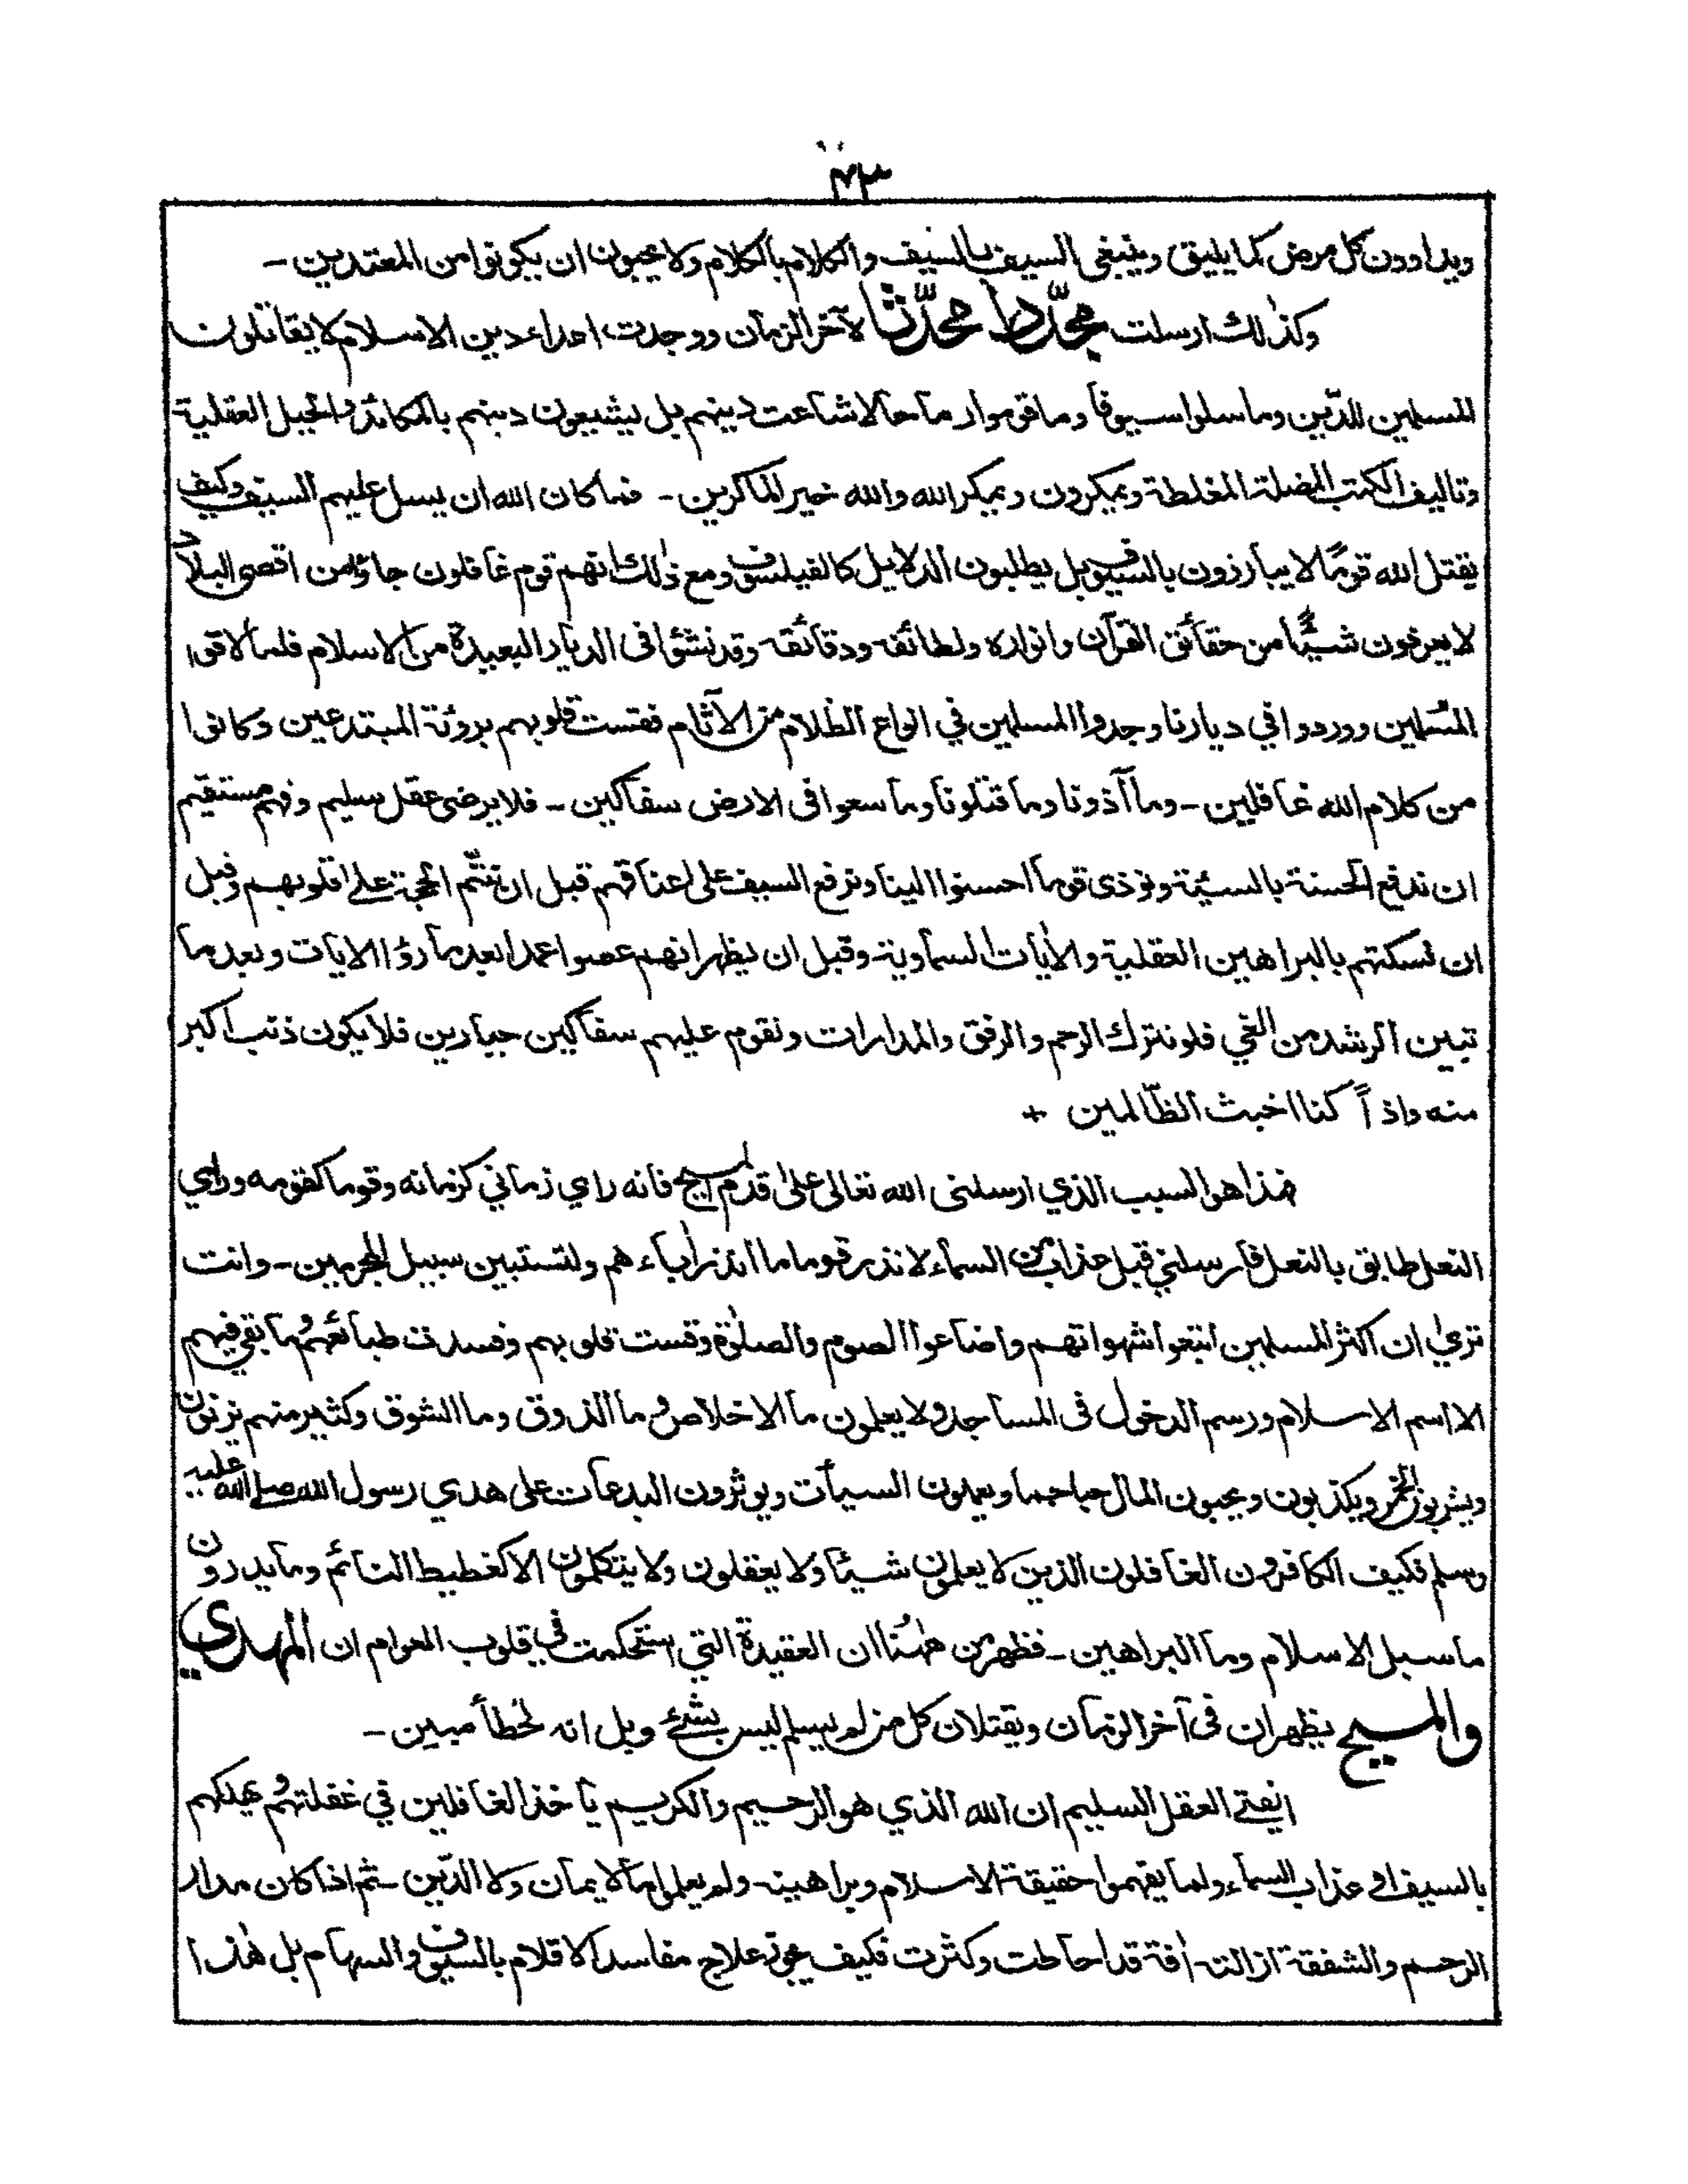 ٧٣
ويداوون كل مرض كما يليق وينبغى السيف بالسيف والكلام بالكلام ولا يحبون ان يكونوا من المعتدين -
وكذلك ارسلت مجدّدا محدّثا لآخر الزمان ووجدت اعداء دين الاسلام لا يقاتلون
المسلمين للدّين وما سلوا سيوفا وما قوموا رماحا لاشاعت دينهم بل يشيعون دينهم بالمكائد والحيل العقلية
وتاليف الكتب المضلة المغلطة ويمكرون ويمكر الله والله خير الماكرين - فما كان الله ان يسل عليهم السيف وكيف
يقتل الله قومًا لا يبارزون بالسيوف بل يطلبون الدلايل كالفيلسوف ومع ذلك انهم قوم غافلون جاؤا من اقصى البلاد
لا يعرفون شيئًا من حقائق القرآن وانواره ولطائفه ودقائقه وقد نشؤا فى الديار البعيدة من الاسلام فلما لاقوا
المسلمين ووردوا في ديارنا وجدوا المسلمين في انواع الظلام من الآثام فقست قلوبهم برؤية المبتدعين وكانوا
من كلام الله غافلين - وما آذونا وما قتلونا وما سعوا فى الارض سفاكين - فلا يرضى عقل سليم وفهم مستقيم
ان ندفع الحسنة بالسيئة ونوذى قوما احسنوا الينا ونرفع السيف على اعناقهم قبل ان نتم الحجة على قلوبهم وقبل
ان نسكتهم بالبراهين العقلية والآيات السماوية وقبل ان يظهر انهم عصوا عمدا بعد ما رؤا الايات وبعد ما
تبين الرشد من الغي فلو نترك الرحم والرفق والمدارات ونقوم عليهم سفاكين جبارين فلا يكون ذنب اكبر
منه واذاً كنا اخبث الظّالمين +
فهذا هو السبب الذي ارسلنى الله تعالى على قدم المسيح فانه راى زماني كزمانه وقوما كقومه وراى
النعل طابق بالنعل فارسلني قبل عذاب من السماء لانذر قوما ما انذر اباءهم ولتستبين سبيل المجرمين - وانت
ترى ان اكثر المسلمين اتبعوا شهواتهم واضاعوا الصوم والصلوة وقست قلوبهم وفسدت طبائعهم وما بقي فيهم
الا اسم الاسلام ورسم الدخول فى المساجد ولا يعلمون ما الاخلاص وما الذوق وما الشوق وكثير منهم يزنون
ويشربون الخمر ويكذبون ويحبون المال حبا جما ويعملون السيآت ويوثرون البدعات على هدي رسول الله صلى الله عليه
وسلم فكيف الكافرون الغافلون الذين لا يعلمون شيئا ولا يعقلون ولا يتكلمون الا كغطيط النائم وما يدرون
ما سبل الاسلام وما البراهين - فظهر من ههنا ان العقيدة التي استحكمت في قلوب العوام ان المهدي
والمسيح يظهران فى آخر الزمان ويقتلان كل من لم يسلم ليس بشئ وبل انه لخطأ مبين -
ايفتى العقل السليم ان الله الذي هو الرحيم والكريم يأخذ الغافلين في غفلتهم ويهلكهم
بالسيف او عذاب السماء ولما يفهموا حقيقة الاسلام وبراهينه ولم يعلموا ما الايمان ولا الدّين - ثم اذا كان مدار
الرحم والشفقة ازالة آفة قد احاطت وكثرت فكيف يجوز علاج مفاسد الاقلام بالسيوف والسهام بل هذا